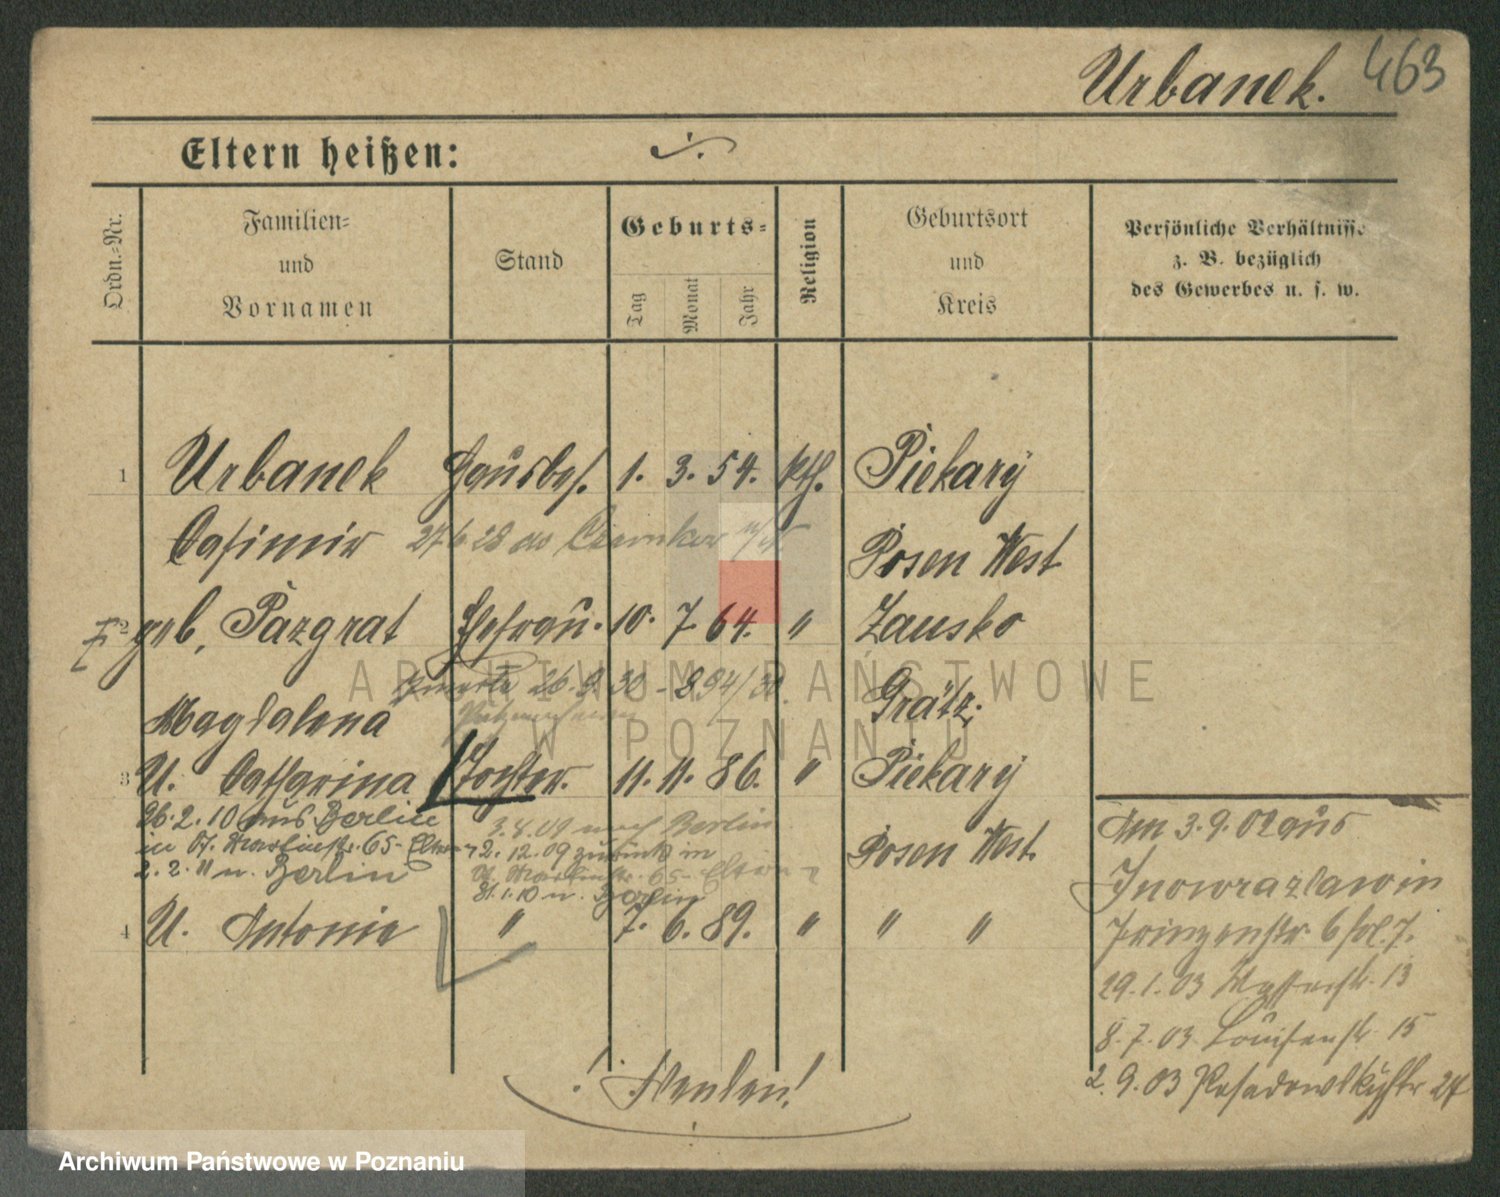 Urbanek. 463
Eltern heißen: ·/·
Ordn.-Nr.
Familien-
und
Vornamen
Stand
Geburts-
Tag
Monat
Jahr
Religion
Geburtsort
und
Kreis
Persönliche Verhältnisse
z. B. bezüglich
des Gewerbes u. s. w.
1 Urbanek Hausbes. 1. 3. 54. kth. Piekary
Casimir 27 6 28 Posen West
2 geb. Pazgrat Ehefrau. 10. 7. 64. " Zausko
26. 9. 30 - 894/30.
Magdalena Grätz.
3 U. Catharina Tochter. 11. 11. 86. " Piekary
26. 2. 10 aus Berlin
in 65 - Eltern
2. 2. 11 n. Berlin
3. 8. 09 nach Berlin
2. 12. 09 zurück in
65 - Eltern
31. 1. 10 n. Berlin
Posen West.
4 U. Antonie " 7. 6. 89. " " "
Am 3. 9. 02 aus
Inowrazlaw in
Prinzenstr. 6 7.
29. 1. 03 Wasserstr. 13
8. 7. 03 Louisenstr. 15
2. 9. 03 Posadowskystr. 27
! Wenden!
ARCHIWUM PAŃSTWOWE
W POZNANIU
Archiwum Państwowe w Poznaniu